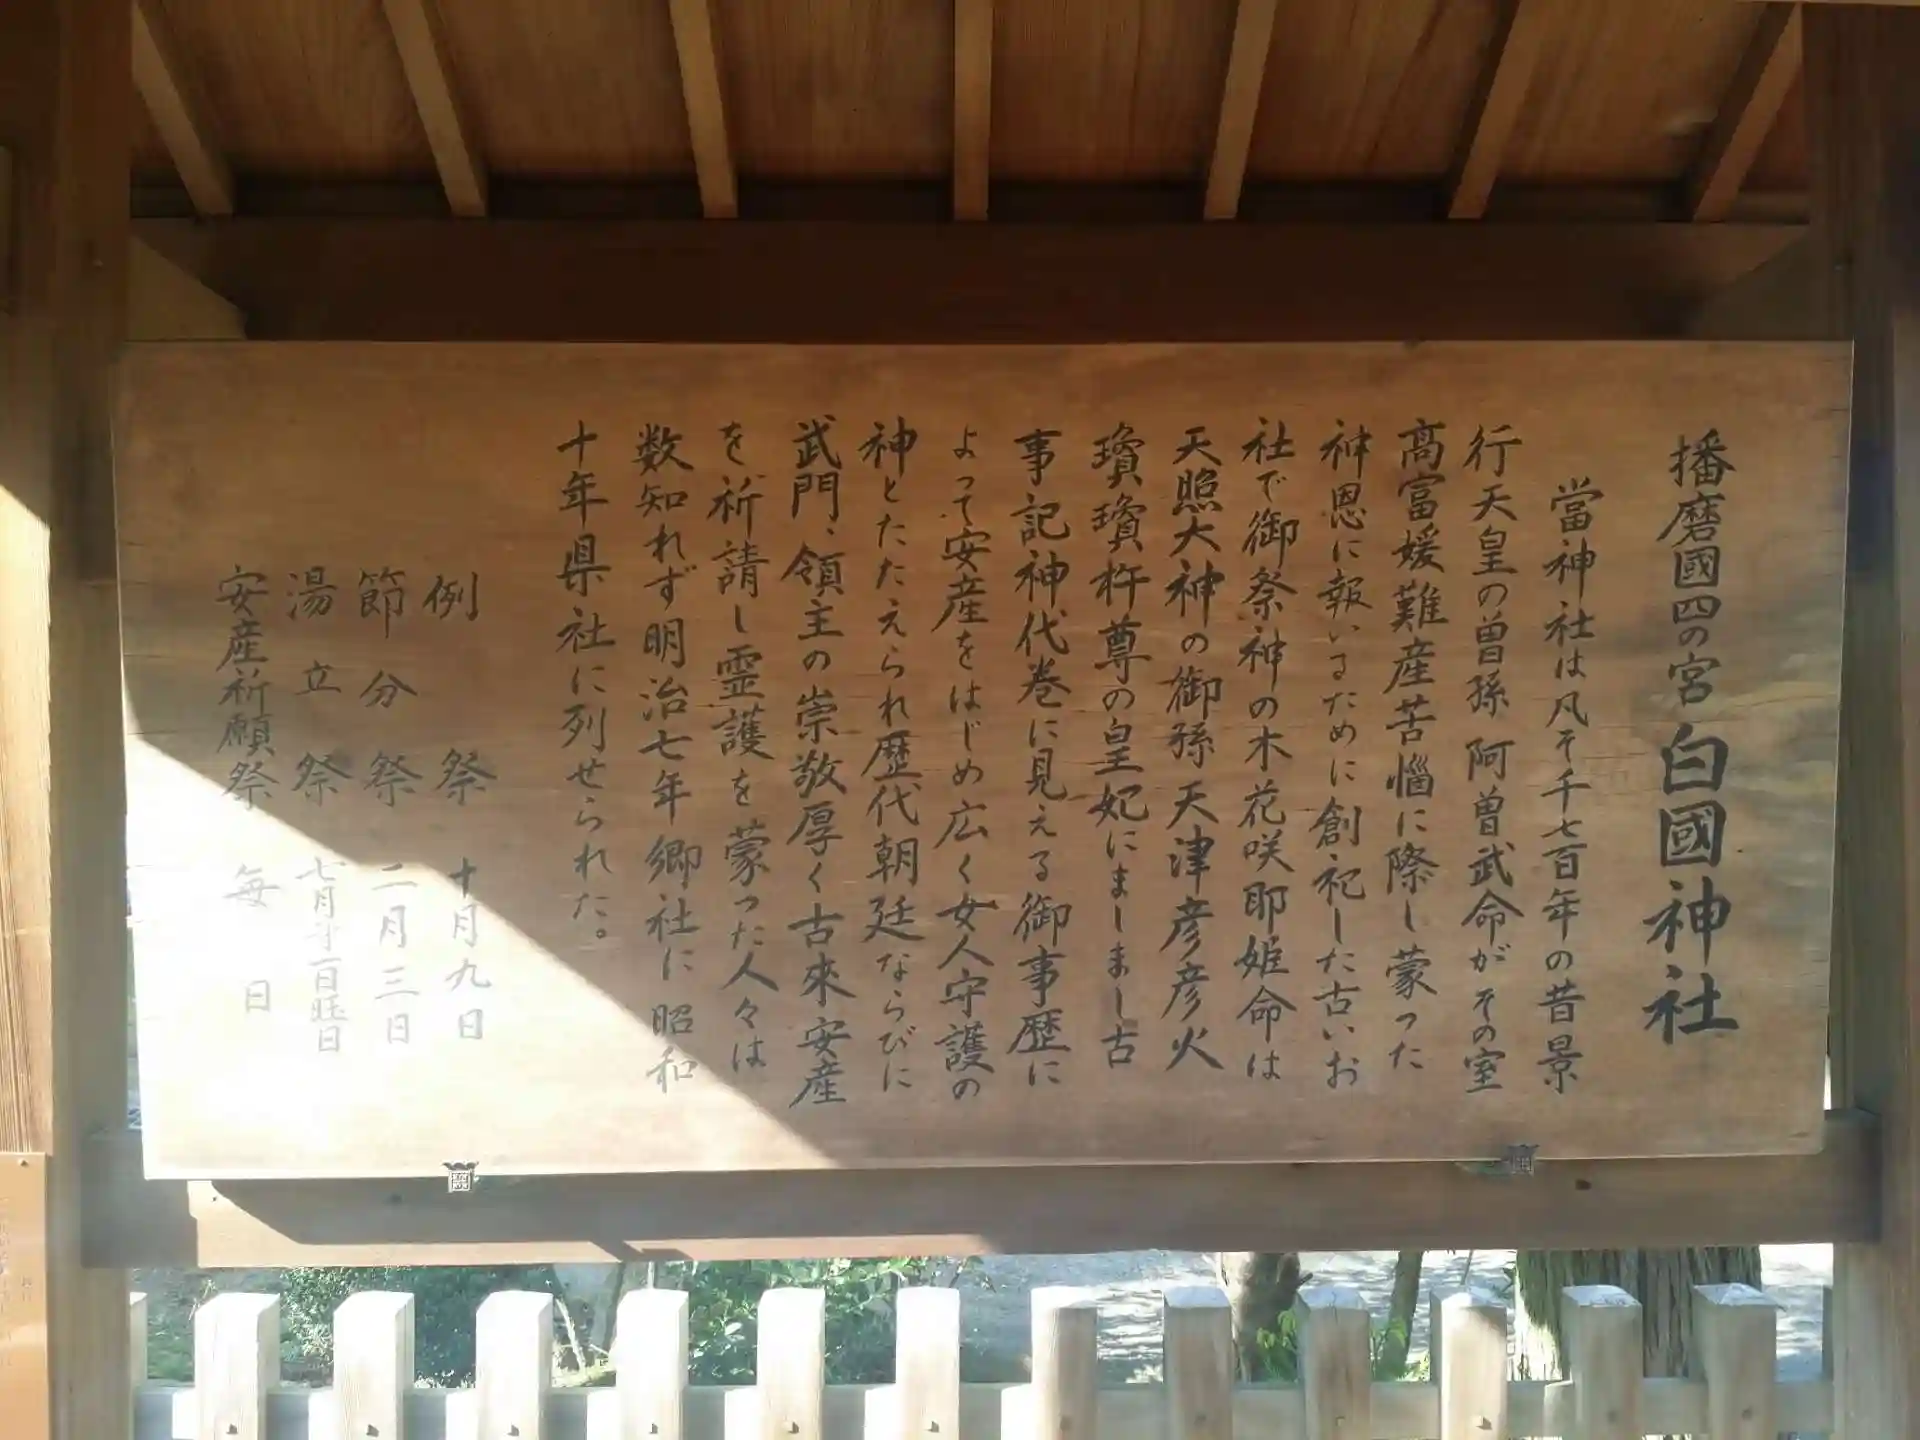 播磨國四の宮 白國神社
當神社は凡そ千七百年の昔景
行天皇の曽孫 阿曽武命がその室
高富媛難産苦惱に際し蒙った
神恩に報いるために創祀した古いお
社で御祭神の木花咲耶姫命は
天照大神の御孫天津彦彦火
瓊瓊杵尊の皇妃にましまし古
事記神代巻に見える御事歴に
よって安産をはじめ広く女人守護の
神とたたえられ歴代朝廷ならびに
武門、領主の崇敬厚く古來安産
を祈請し霊護を蒙った人々は
数知れず明治七年郷社に昭和
十年県社に列せられた。
例祭 十月九日
節分祭 二月三日
湯立祭 七月
安産祈願祭 毎日